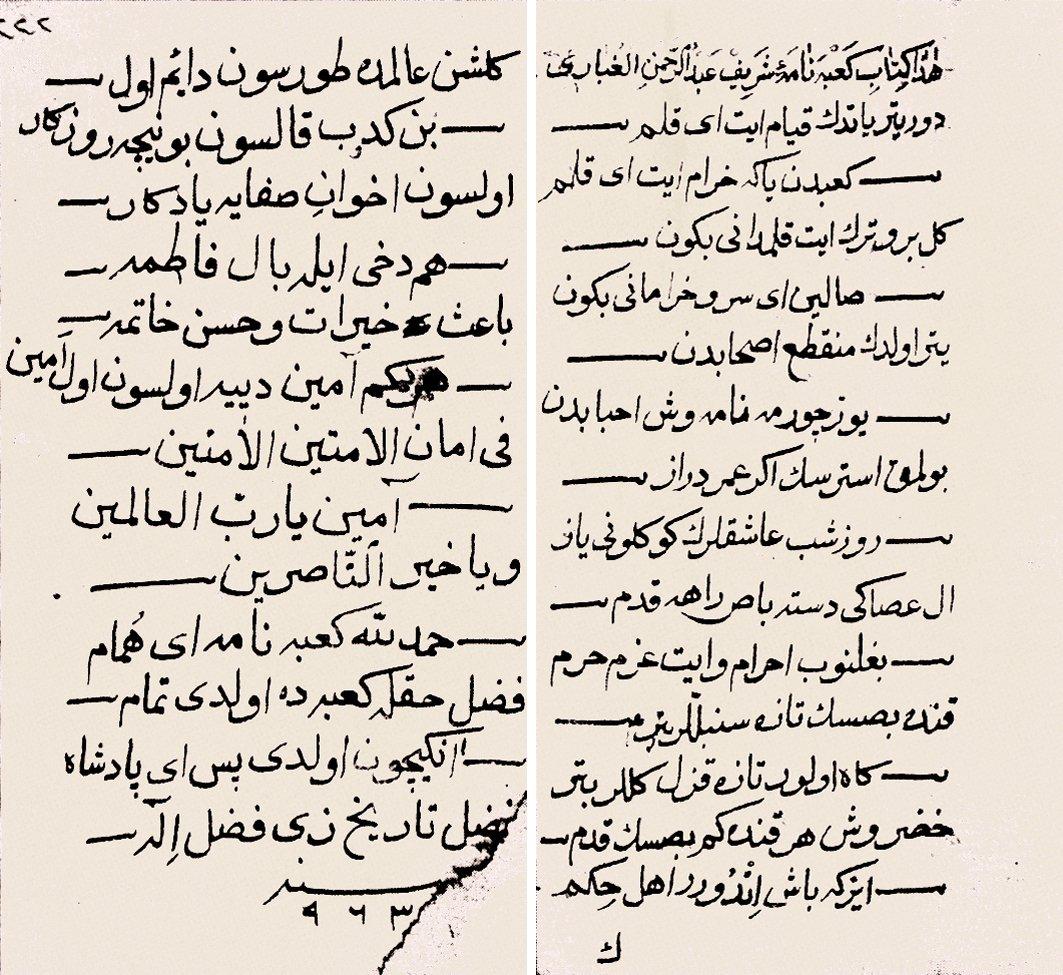 هذا كتاب كعبه نامهٔ شريف عبد الرحمن الغباری
دوریتر یاتدك قیام ایت ای قلم
كعبدن یاكه خرام ایت ای قلم
كل برو ترك ایت قلمدانی بكون
صالین ای سرو خرامانی بكون
یتر اولدك منقطع اصحابدن
یوز چورمه نامه وش احبابدن
بولمق استرسك اكر عمر دراز
روز شب عاشقلرك كوكلونی یاز
ال عصاكی دسته باص راهه قدم
بغلنوب احرام وایت عزم حرم
قنده بصسك تازه سنبللر بتر
كاه اولور تازه قزل كللر بتر
خضر وش هر قنده كم بصسك قدم
ایزكه باش اندورر اهل حكم
ك
٢٢٢
كلشن عالمده طورسون دایم اول
بن كدب قالسون بو نیچه روزكار
اولسون اخوان صفایه یادكار
هم دخی ایله بال فاطمه
باعث خیرات وحسن خاتمه
هر كیم آمین دییه اولسون اول آمین
فی امان الامنین الأمنین
آمین یا ربّ العالمین
ویا خیر النّاصرین
حمد لله كعبه نامه ای هُمام
فضل حقله كعبه ده اولدی تمام
انكیچون اولدی پس ای پادشاه
فضل تاریخ زی فضل اِلٓه
سنه
٩٦٣